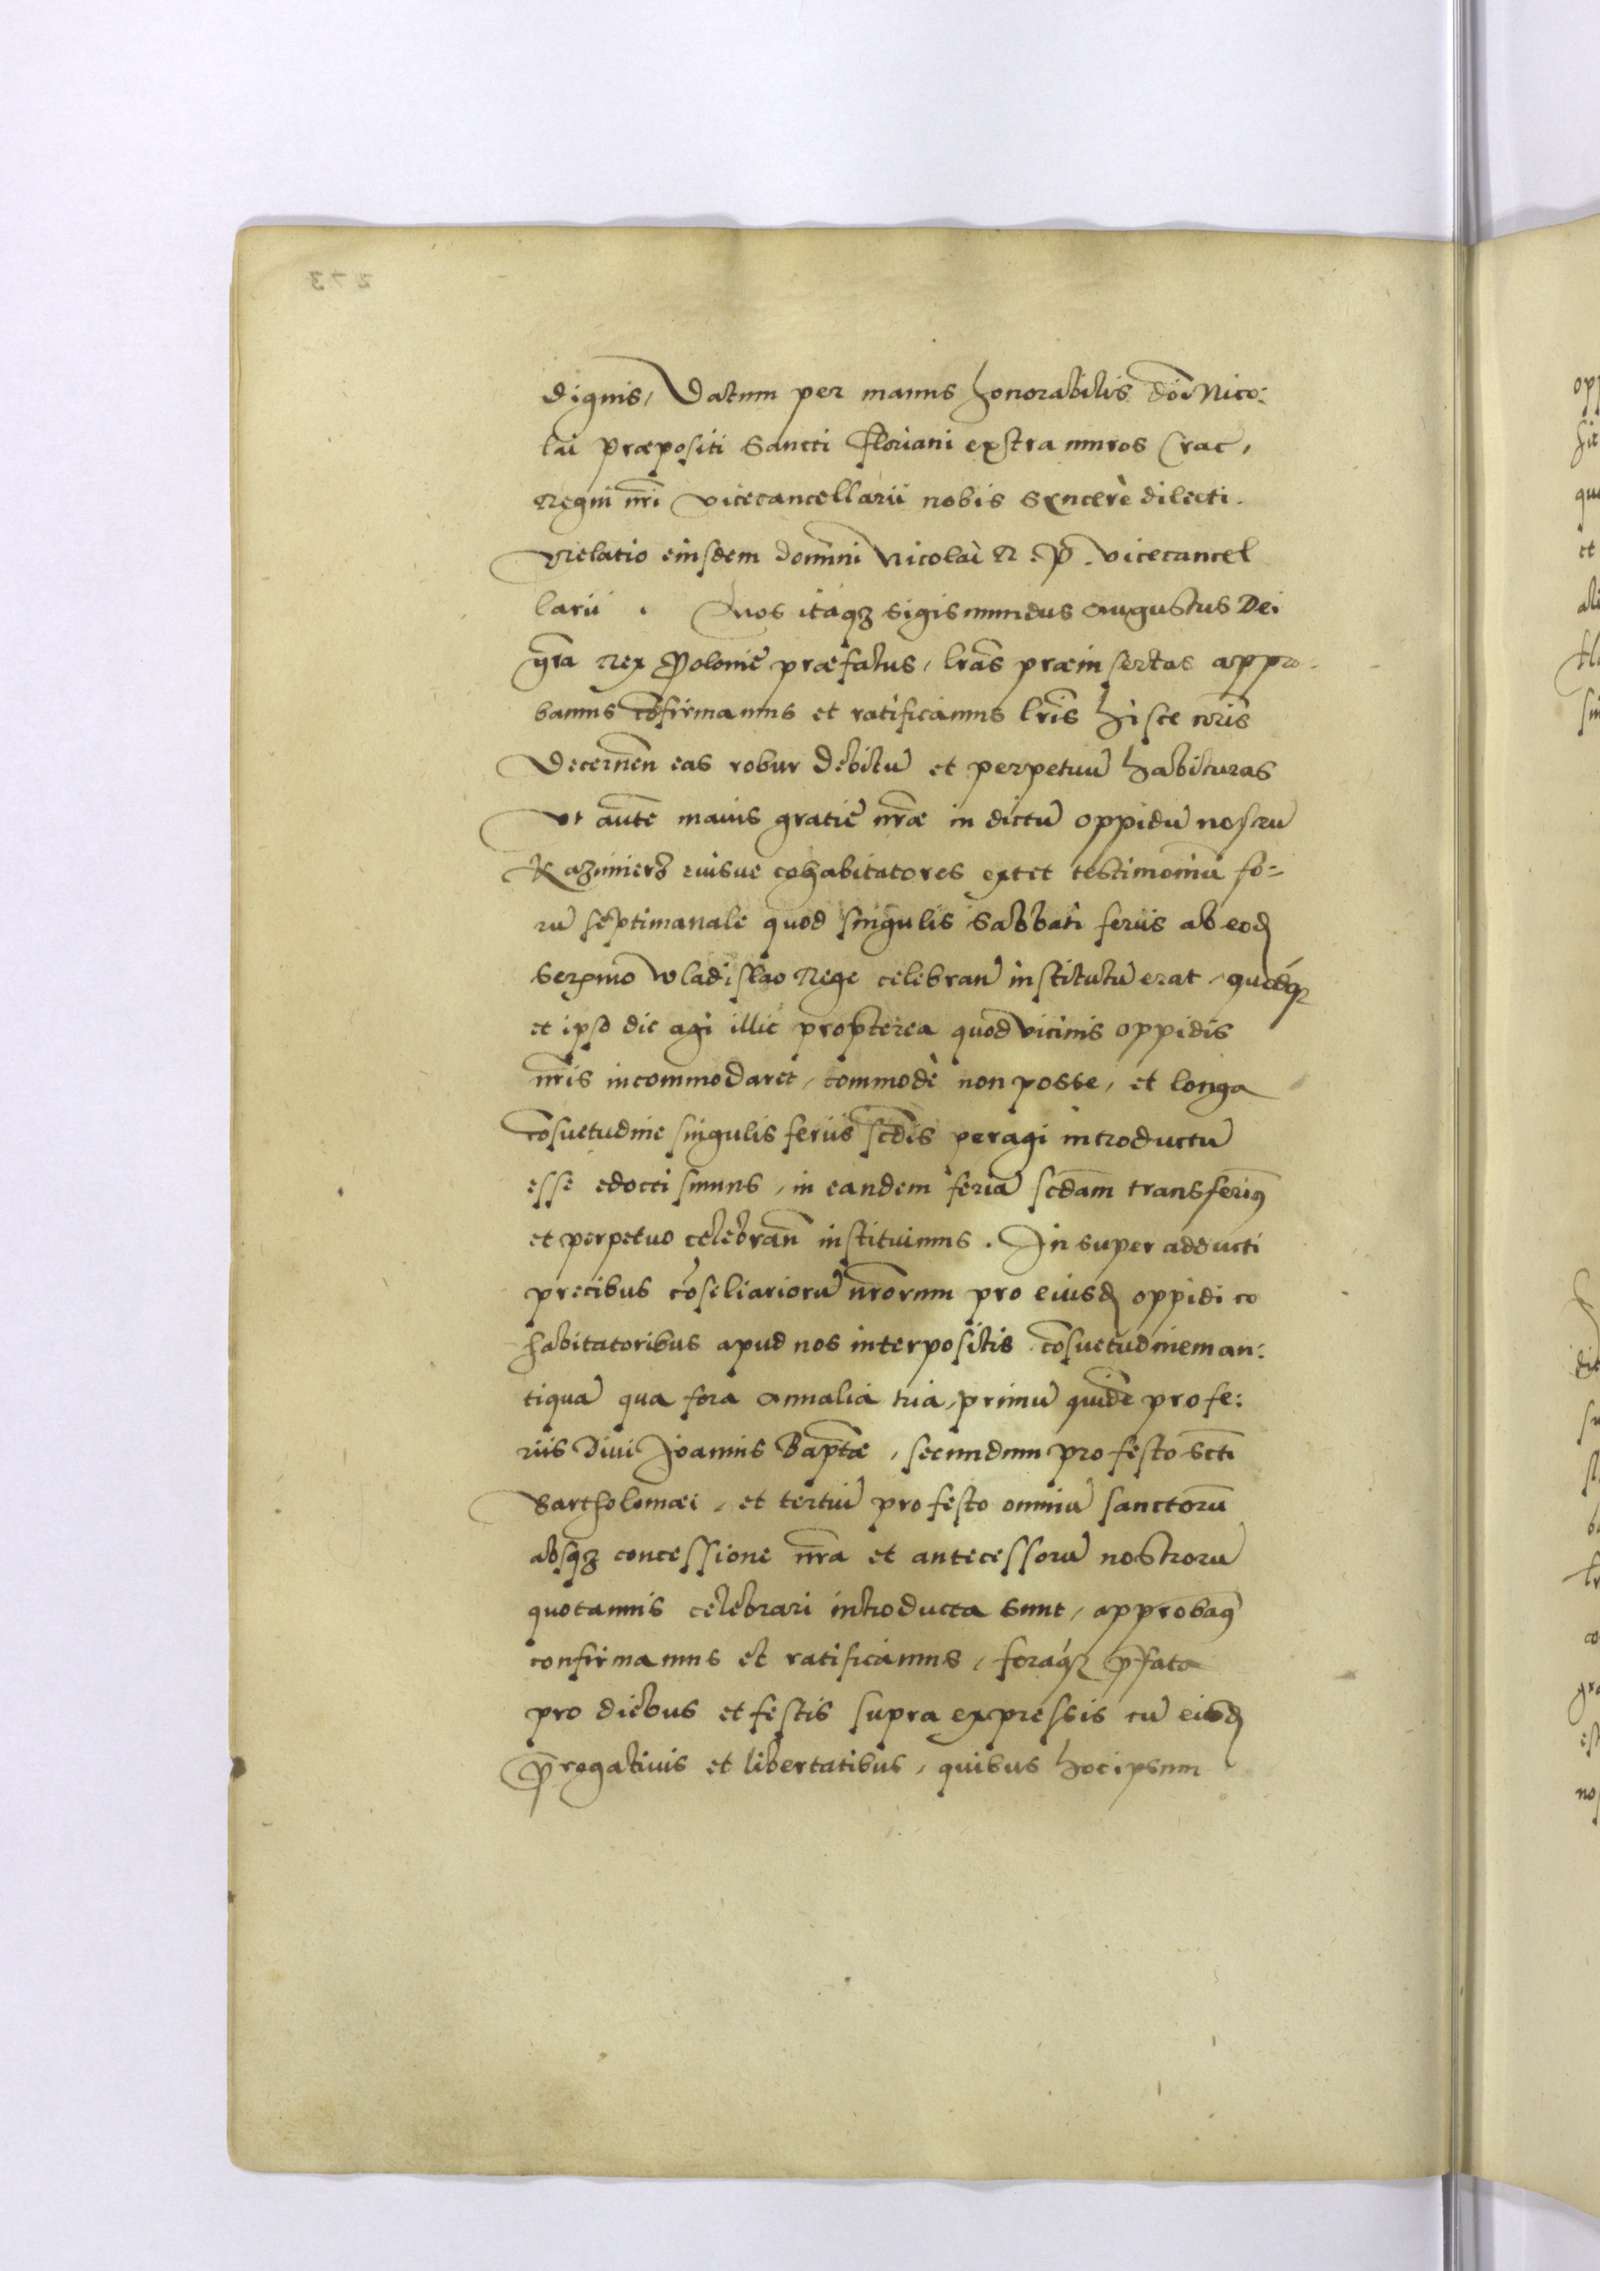 dignis, Datum per manus honorabilis dn̄i Nico:
lai Præpositi Sancti Floriani extra muros Crac,
Regni nr̄i vicecancellarii nobis syncerè dilecti.
Relatio eiusdem domini Nicolai R. P. vicecancel
larii. Nos itaqȝ Sigismundus Augustus Dei
gr̄a Rex Polonie præfatus, lr̄as præinsertas appro-
bamus cōfirmamus et ratificamus lr̄is hisce nr̄is
Decernen̄ eas robur debitū et perpetuū habituras
Vt autē maius gratiē nr̄æ in dictū oppidū nostrū
Kazimierz eiusve cohabitatores extet testimoniū fo=
rū septimanale quod singulis Sabbati feriis ab eod
Serenmo Vladislao Rege celebran̄ institutū erat, quodqȝ
et ipso die agi illic propterea quod vicinis oppidis
nr̄is incommodaret, commodè non posse, et longa
cōsuetudine singulis feriis scd̄is peragi introductū
esse edocti sumus, in eandem feriā scd̄am transferimꝰ
et perpetuo celebran̄ instituimus. In super adducti
precibus cōsiliariorū nr̄orum pro eiusd oppidi co
habitatoribus apud nos interpositis cōsuetudinem an:
tiquā qua fora annalia tria, primū quidē pro fe:
riis Divi Joannis Bapt̄æ, secundum pro festo Sct̄i
Bartholomæi, et tertiū pro festo omniū sanctorū
absqȝ concessione nr̄a et antecessorū nostrorū
quotannis celebrari introducta sunt, approbamꝰ
confirmamus et ratificamus, foraqȝ p̄fata
pro diebus et festis supra expressis cū eisd
p̄rogativis et libertatibus, quibus hoc ipsum
273